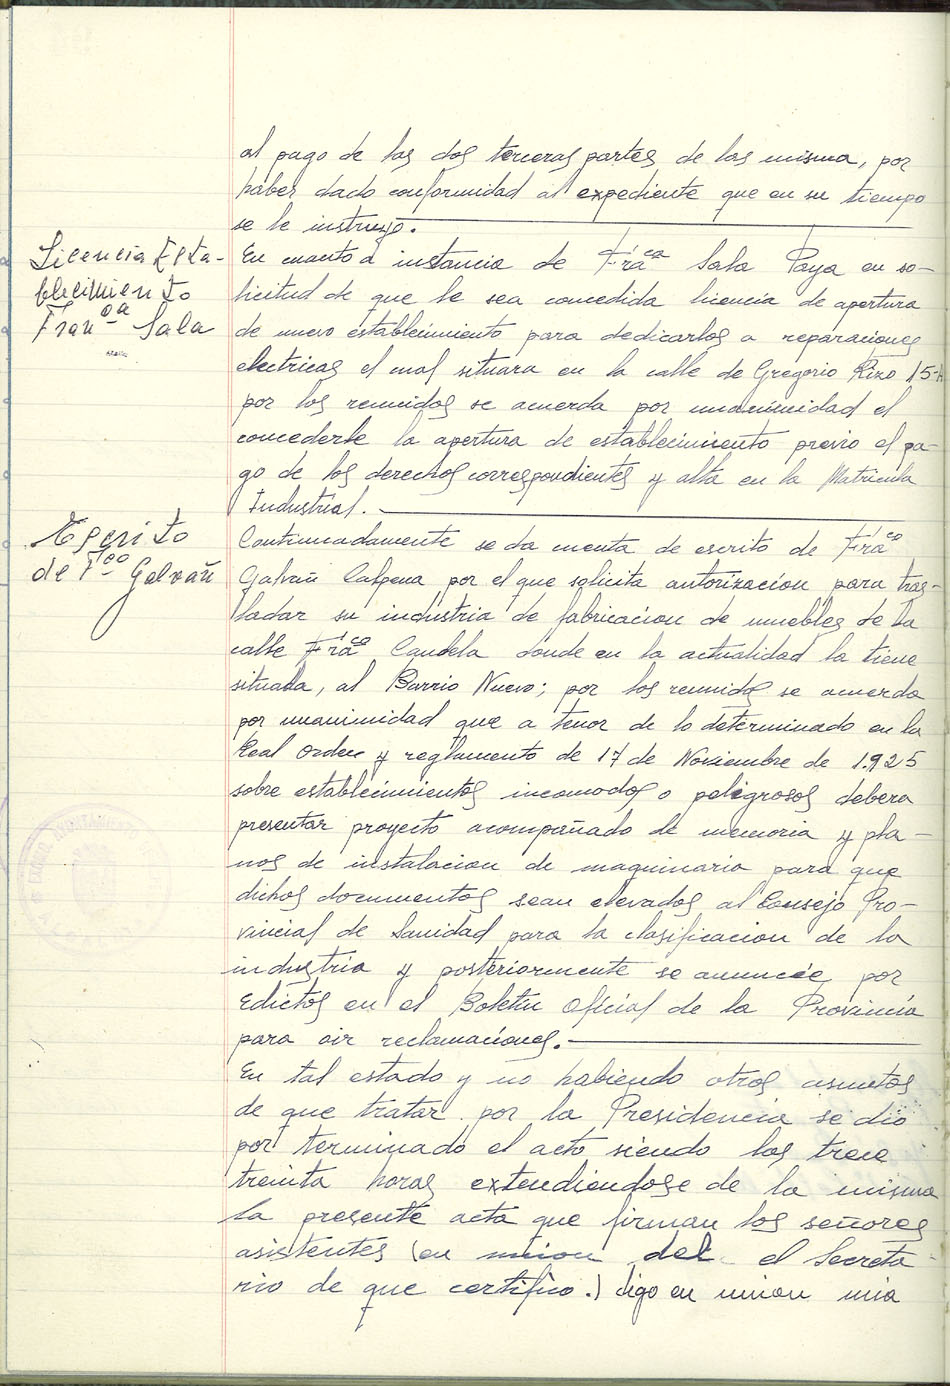 al pago de las dos terceras partes de las misma, por
haber dado conformidad al expediente que en su tiempo
se le instruyo.
Licencia Esta-
blecimiento
Fran^ca Sala
En cuanto a instancia de Frá^ca Sala Paya en so-
licitud de que le sea concedida licencia de apertura
de nuevo establecimiento para dedicarlos a reparaciones
electricas el cual situara en la calle de Gregorio Rizo 15-A
por los reunidos se acuerda por unanimidad el
concederle la apertura de establecimiento previo el pa-
go de los derechos correspondientes y alta en la Matricula
Industrial.
Escrito
de F^co Galvañ
Continuadamente se da cuenta de escrito de Frá^co
Galvañ Calpena por el que solicita autorización para tras-
ladar su industria de fabricacion de muebles de la
calle Frá^co Candela donde en la actualidad la tiene
situada, al Barrio Nuevo; por los reunidos se acuerda
por unanimidad que a tenor de lo determinado en la
Real Orden y reglamento de 17 de Noviembre de 1.925
sobre establecimientos incomodos o peligrosos debera
presentar proyecto acompañado de memoria y pla-
nos de instalacion de maquinaria para que
dichos documentos sean elevados al Consejo Pro-
vincial de Sanidad para la clasificacion de la
industria y posteriormente se anuncie por
Edictos en el Boletin Oficial de la Provincia
para oir reclamaciones.
En tal estado y no habiendo otros asuntos
de que tratar por la Presidencia se dio
por terminado el acto siendo las trece
treinta horas extendiendose de la misma
la presente acta que firman los señores
asistentes (en union del el Secreta-
rio de que certifico.) digo en union mia